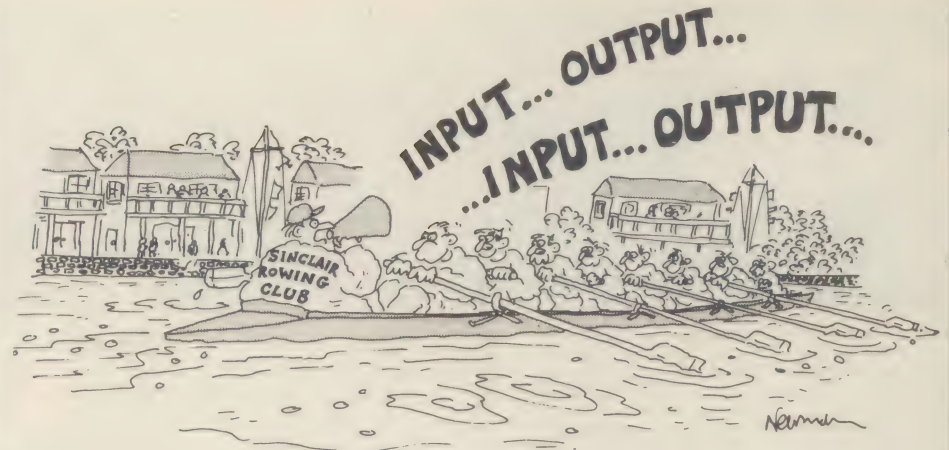 INPUT... OUTPUT...
...INPUT... OUTPUT....
SINCLAIR
ROWING
CLUB
Newman